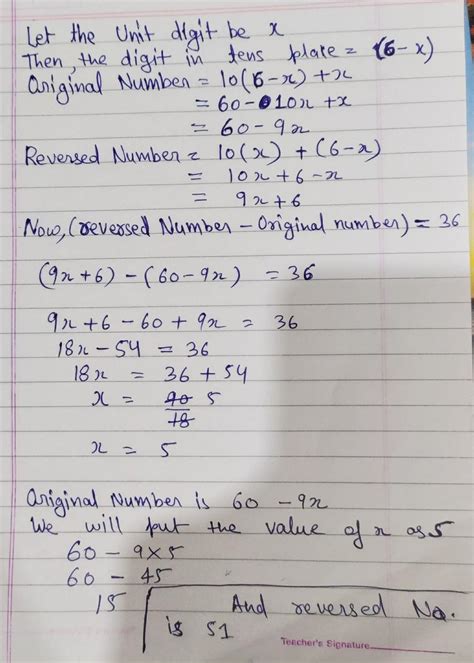 Let the Unit digit be x
Then, the digit in tens place = (6-x)
Original Number = 10(6-x)+x
= 60-10x+x
= 60-9x
Reversed Number = 10(x) + (6-x)
= 10x+6-x
= 9x+6
Now, (reversed Number - Original number) = 36
(9x+6)-(60-9x) = 36
9x+6-60+9x = 36
18x-54 = 36
18x = 36+54
x = 90/18 5
x = 5
Original Number is 60 -9x
We will put the value of x as 5
60-9×5
60 - 45
15
And reversed No.
is 51
Teacher's Signature